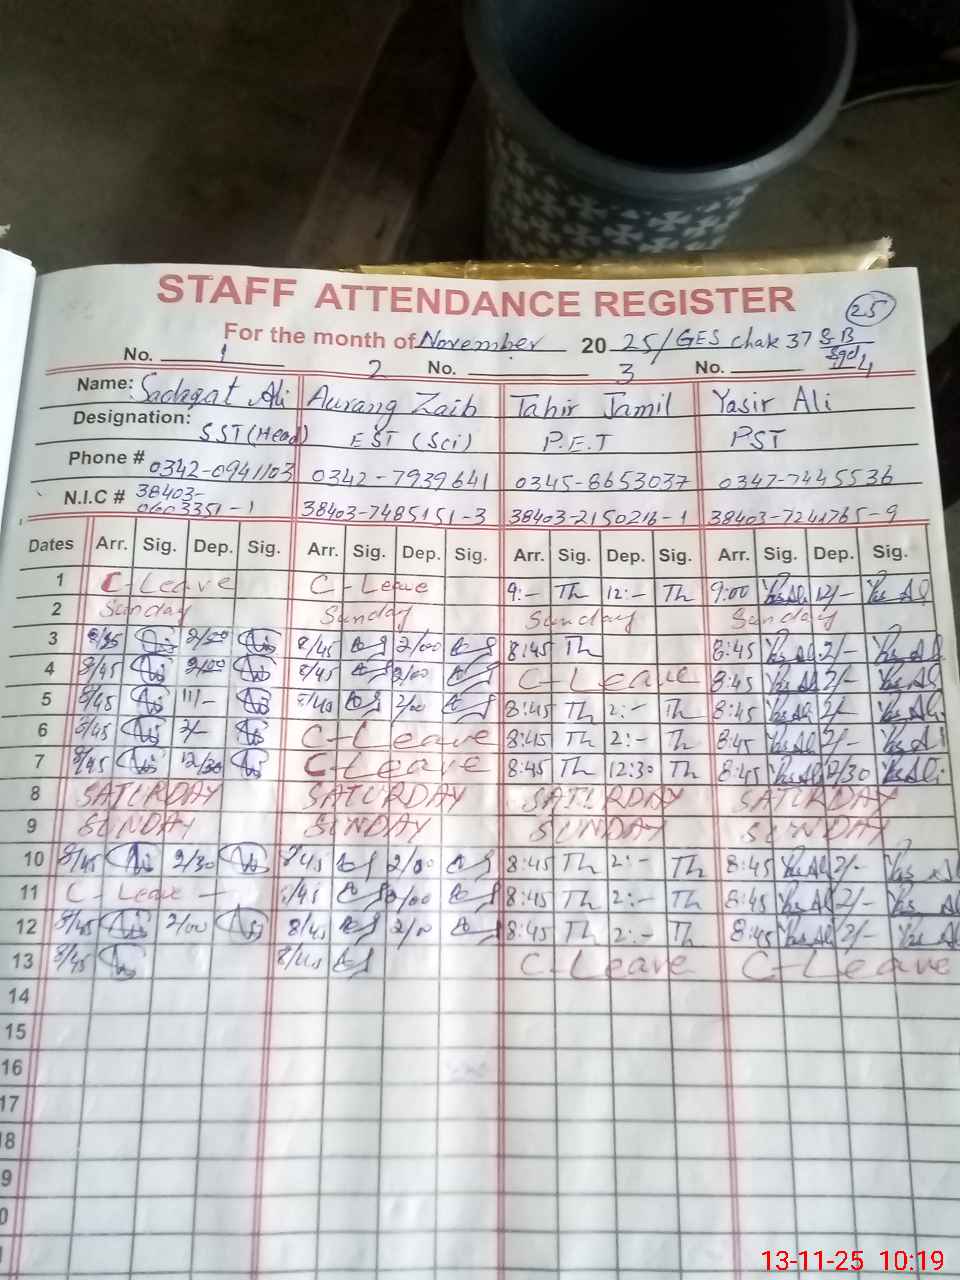 STAFF ATTENDANCE REGISTER
25
For the month of November 2025/GES chak 37 SB
Sgd
No. 1 2 No. 3 No. 4
Name: Sadaqat Ali Aurang Zaib Tahir Jamil Yasir Ali
Designation: SST (Head) EST (Sci) P.E.T PST
Phone # 0342-0941103 0342-7939641 0345-8653037 0347-7445536
N.I.C # 38403-0603351-1 38403-7485151-3 38403-2150216-1 38403-7241765-9
Dates Arr. Sig. Dep. Sig. Arr. Sig. Dep. Sig. Arr. Sig. Dep. Sig. Arr. Sig. Dep. Sig.
1 C-Leave C-Leave 9:- Th 12:- Th 9:00 12/-
2 Sunday Sunday Sunday Sunday
3 8/45 2/00 8/45 2/00 8:45 Th 8:45 2/-
4 8/45 2/00 8/45 2/00 C-Leave 8:45 2/-
5 8/45 2/00 8:45 Th 2:- Th 8:45 2/-
6 8/45 2/- C-Leave 8:45 Th 2:- Th 8:45 2/-
7 8/45 12/30 C-Leave 8:45 Th 12:30 Th 8:45 12/30
8 SATURDAY SATURDAY SATURDAY SATURDAY
9 SUNDAY SUNDAY SUNDAY SUNDAY
10 8/45 2/30 8/45 2/00 8:45 Th 2:- Th 8:45 2/-
11 C-Leave 8/45 2/00 8:45 Th 2:- Th 8:45 2/-
12 8/45 2/00 8/45 2/0 8:45 Th 2:- Th 8:45 2/-
13 8/45 8/45 C-Leave C-Leave
14
15
16
17
18
19
13-11-25 10:19